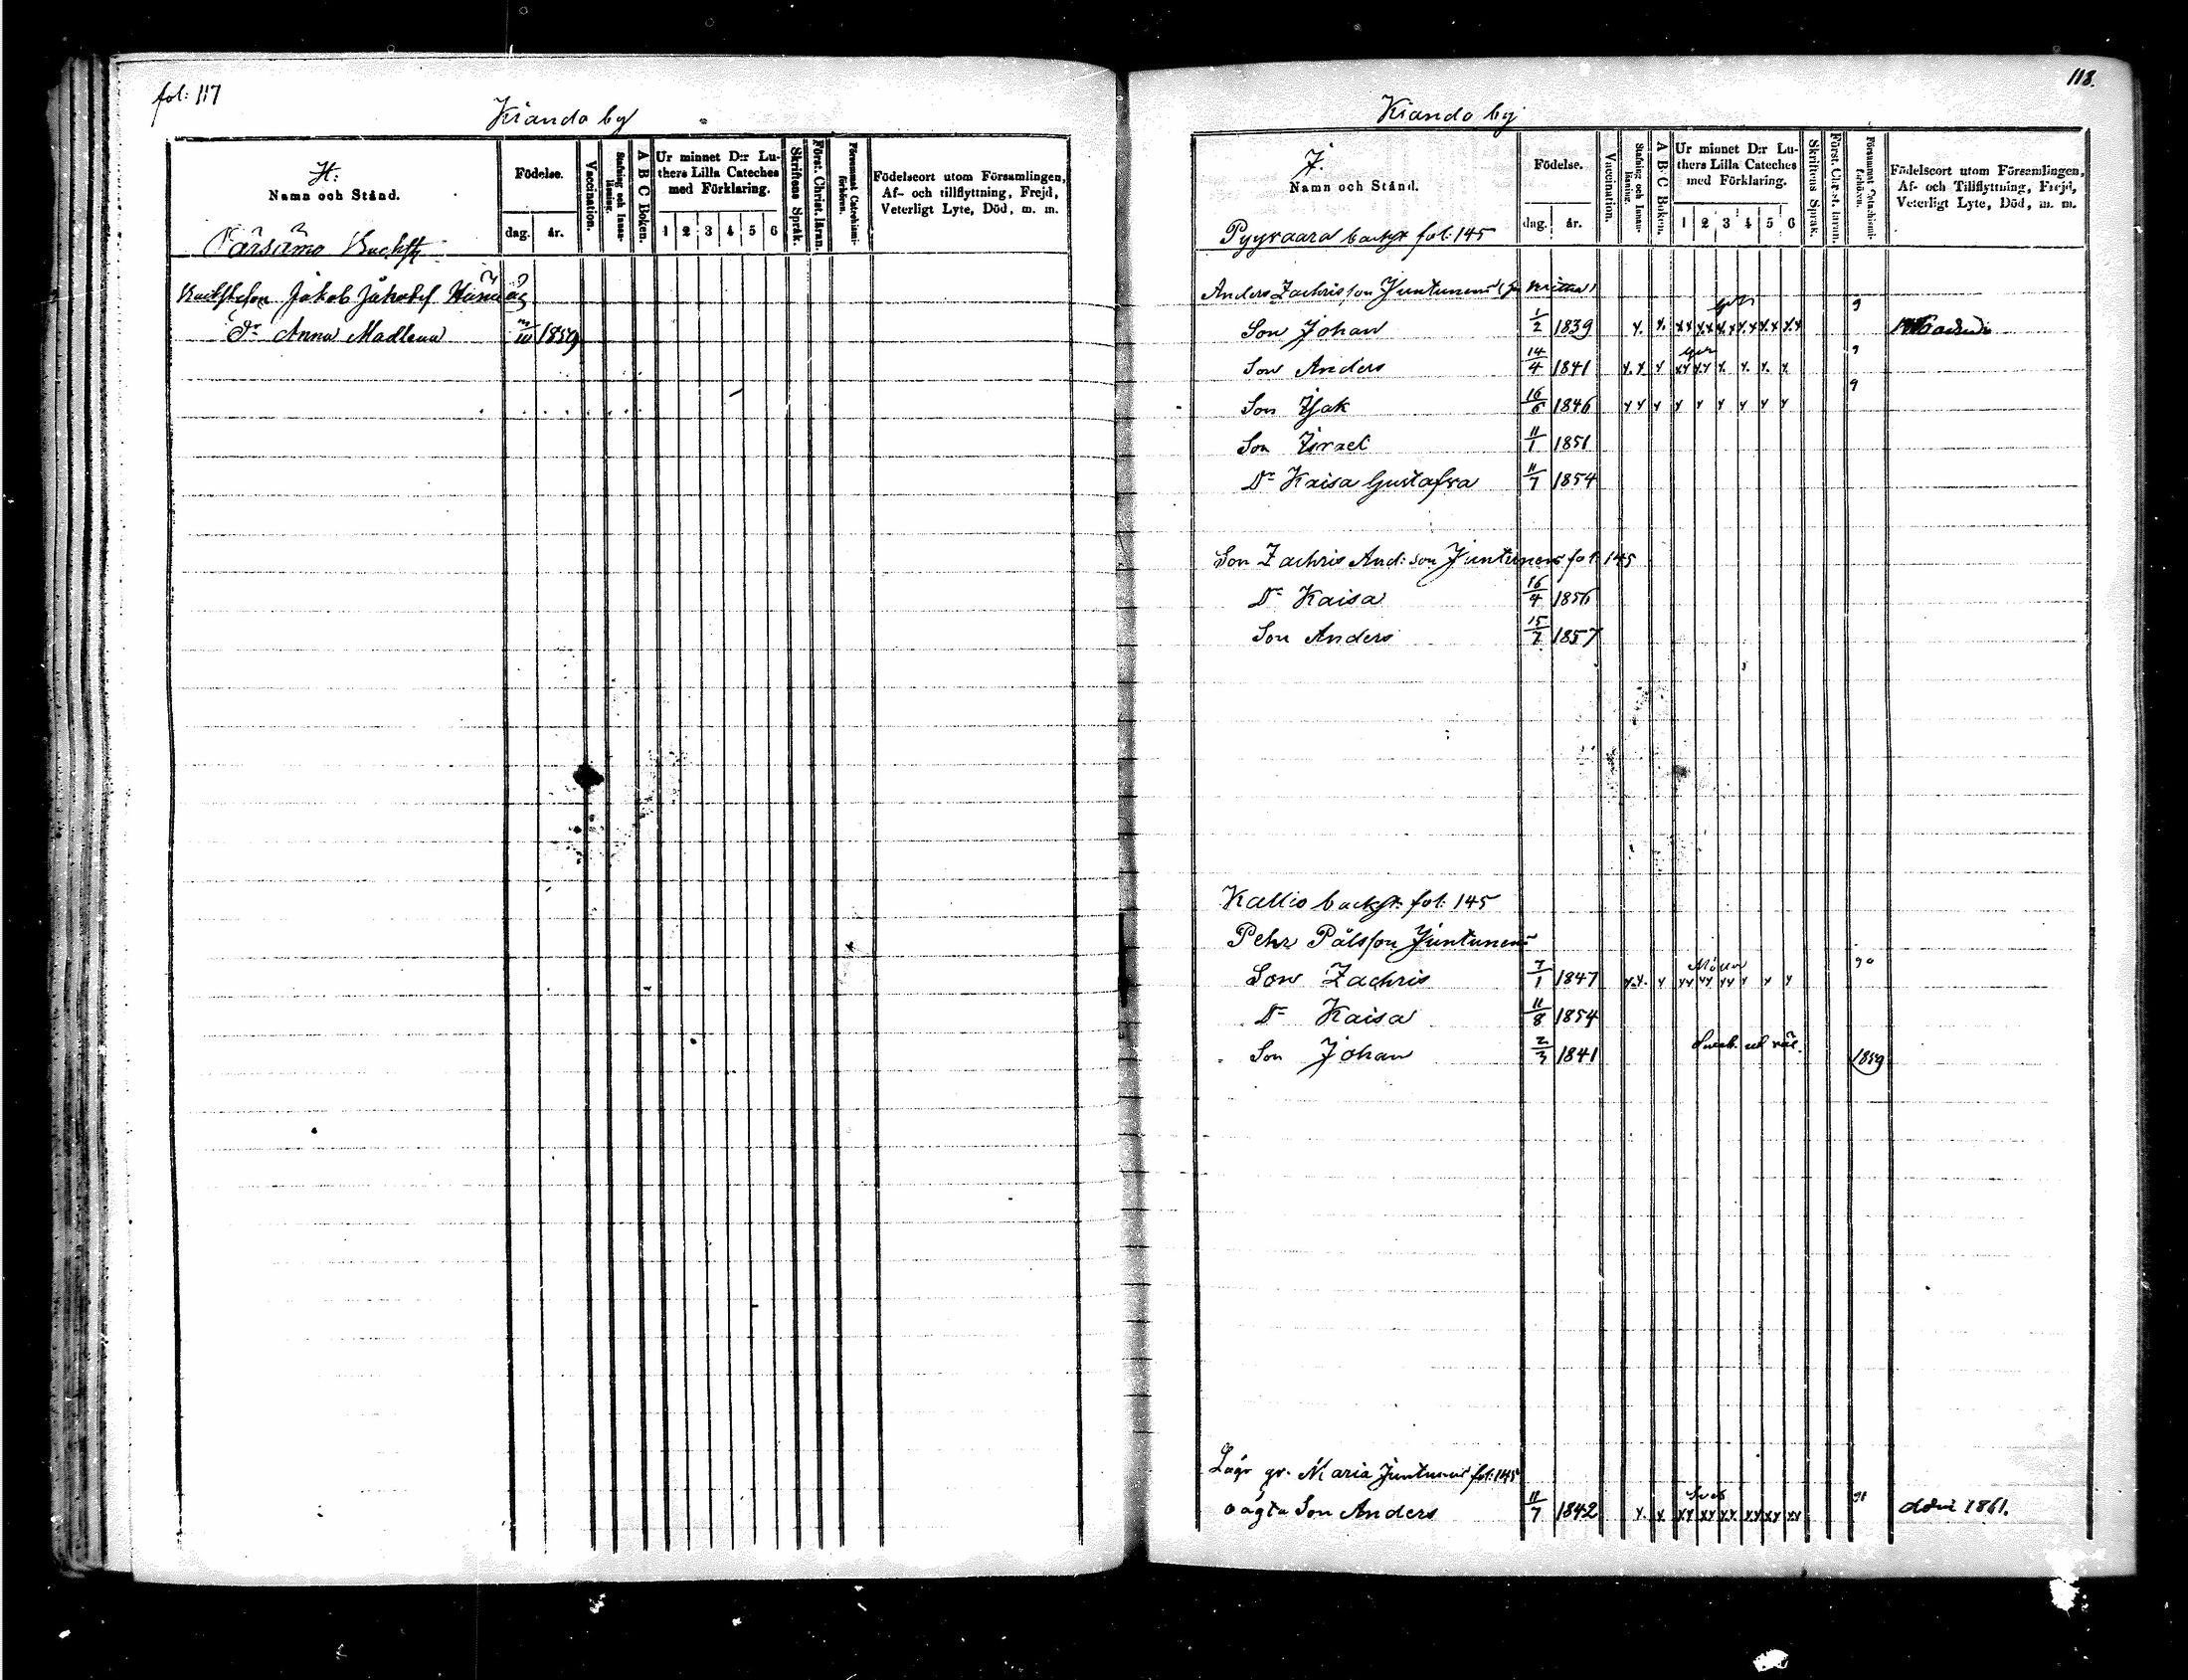 fol: 117
Kiando by
H.
Namn och Stånd.
Födelse.
dag. år.
Vaccination.
Stafning och Innanläsning.
A B C Boken.
Ur minnet D:r Luthers Lilla Cateches med Förklaring.
1 2 3 4 5 6
Skriftens Språk.
Först. Christ. läran.
Försummat Catechismiförhören.
Födelseort utom Församlingen,
Af- och tillflyttning, Frejd,
Veterligt Lyte, Död, m. m.
Jakob
Dr Anna Madlena 1859
118.
Kiando by
J.
Namn och Stånd.
Födelse.
dag. år.
Vaccination.
Stafning och Innanläsning.
A B C Boken.
Ur minnet D:r Luthers Lilla Cateches med Förklaring.
1 2 3 4 5 6
Skriftens Språk.
Först. Christ. läran.
Försummat Catechismiförhören.
Födelseort utom Församlingen,
Af- och Tillflyttning, Frejd,
Veterligt Lyte, Död, m. m.
Pyyvaara backst fol: 145
Anders Zachrisson Juntunens
Son Johan 1/2 1839
Son Anders 14/4 1841
Son Isak 16/6 1846
Son Israel 11/1 1851
Dr Kaisa Gustafva 11/7 1854
Son Zachris And:son Juntunens fol 145
Dr Kaisa 16/4 1856
Son Anders 15/7 1857
Kallio backst. fol: 145
Pehr Pålsson Juntunens
Son Zachris 7/1 1847
Dr Kaisa 11/8 1854
Son Johan 2/3 1841 1859
Maria Juntunen fol: 145
oägta Son Anders 11/7 1842 1861.